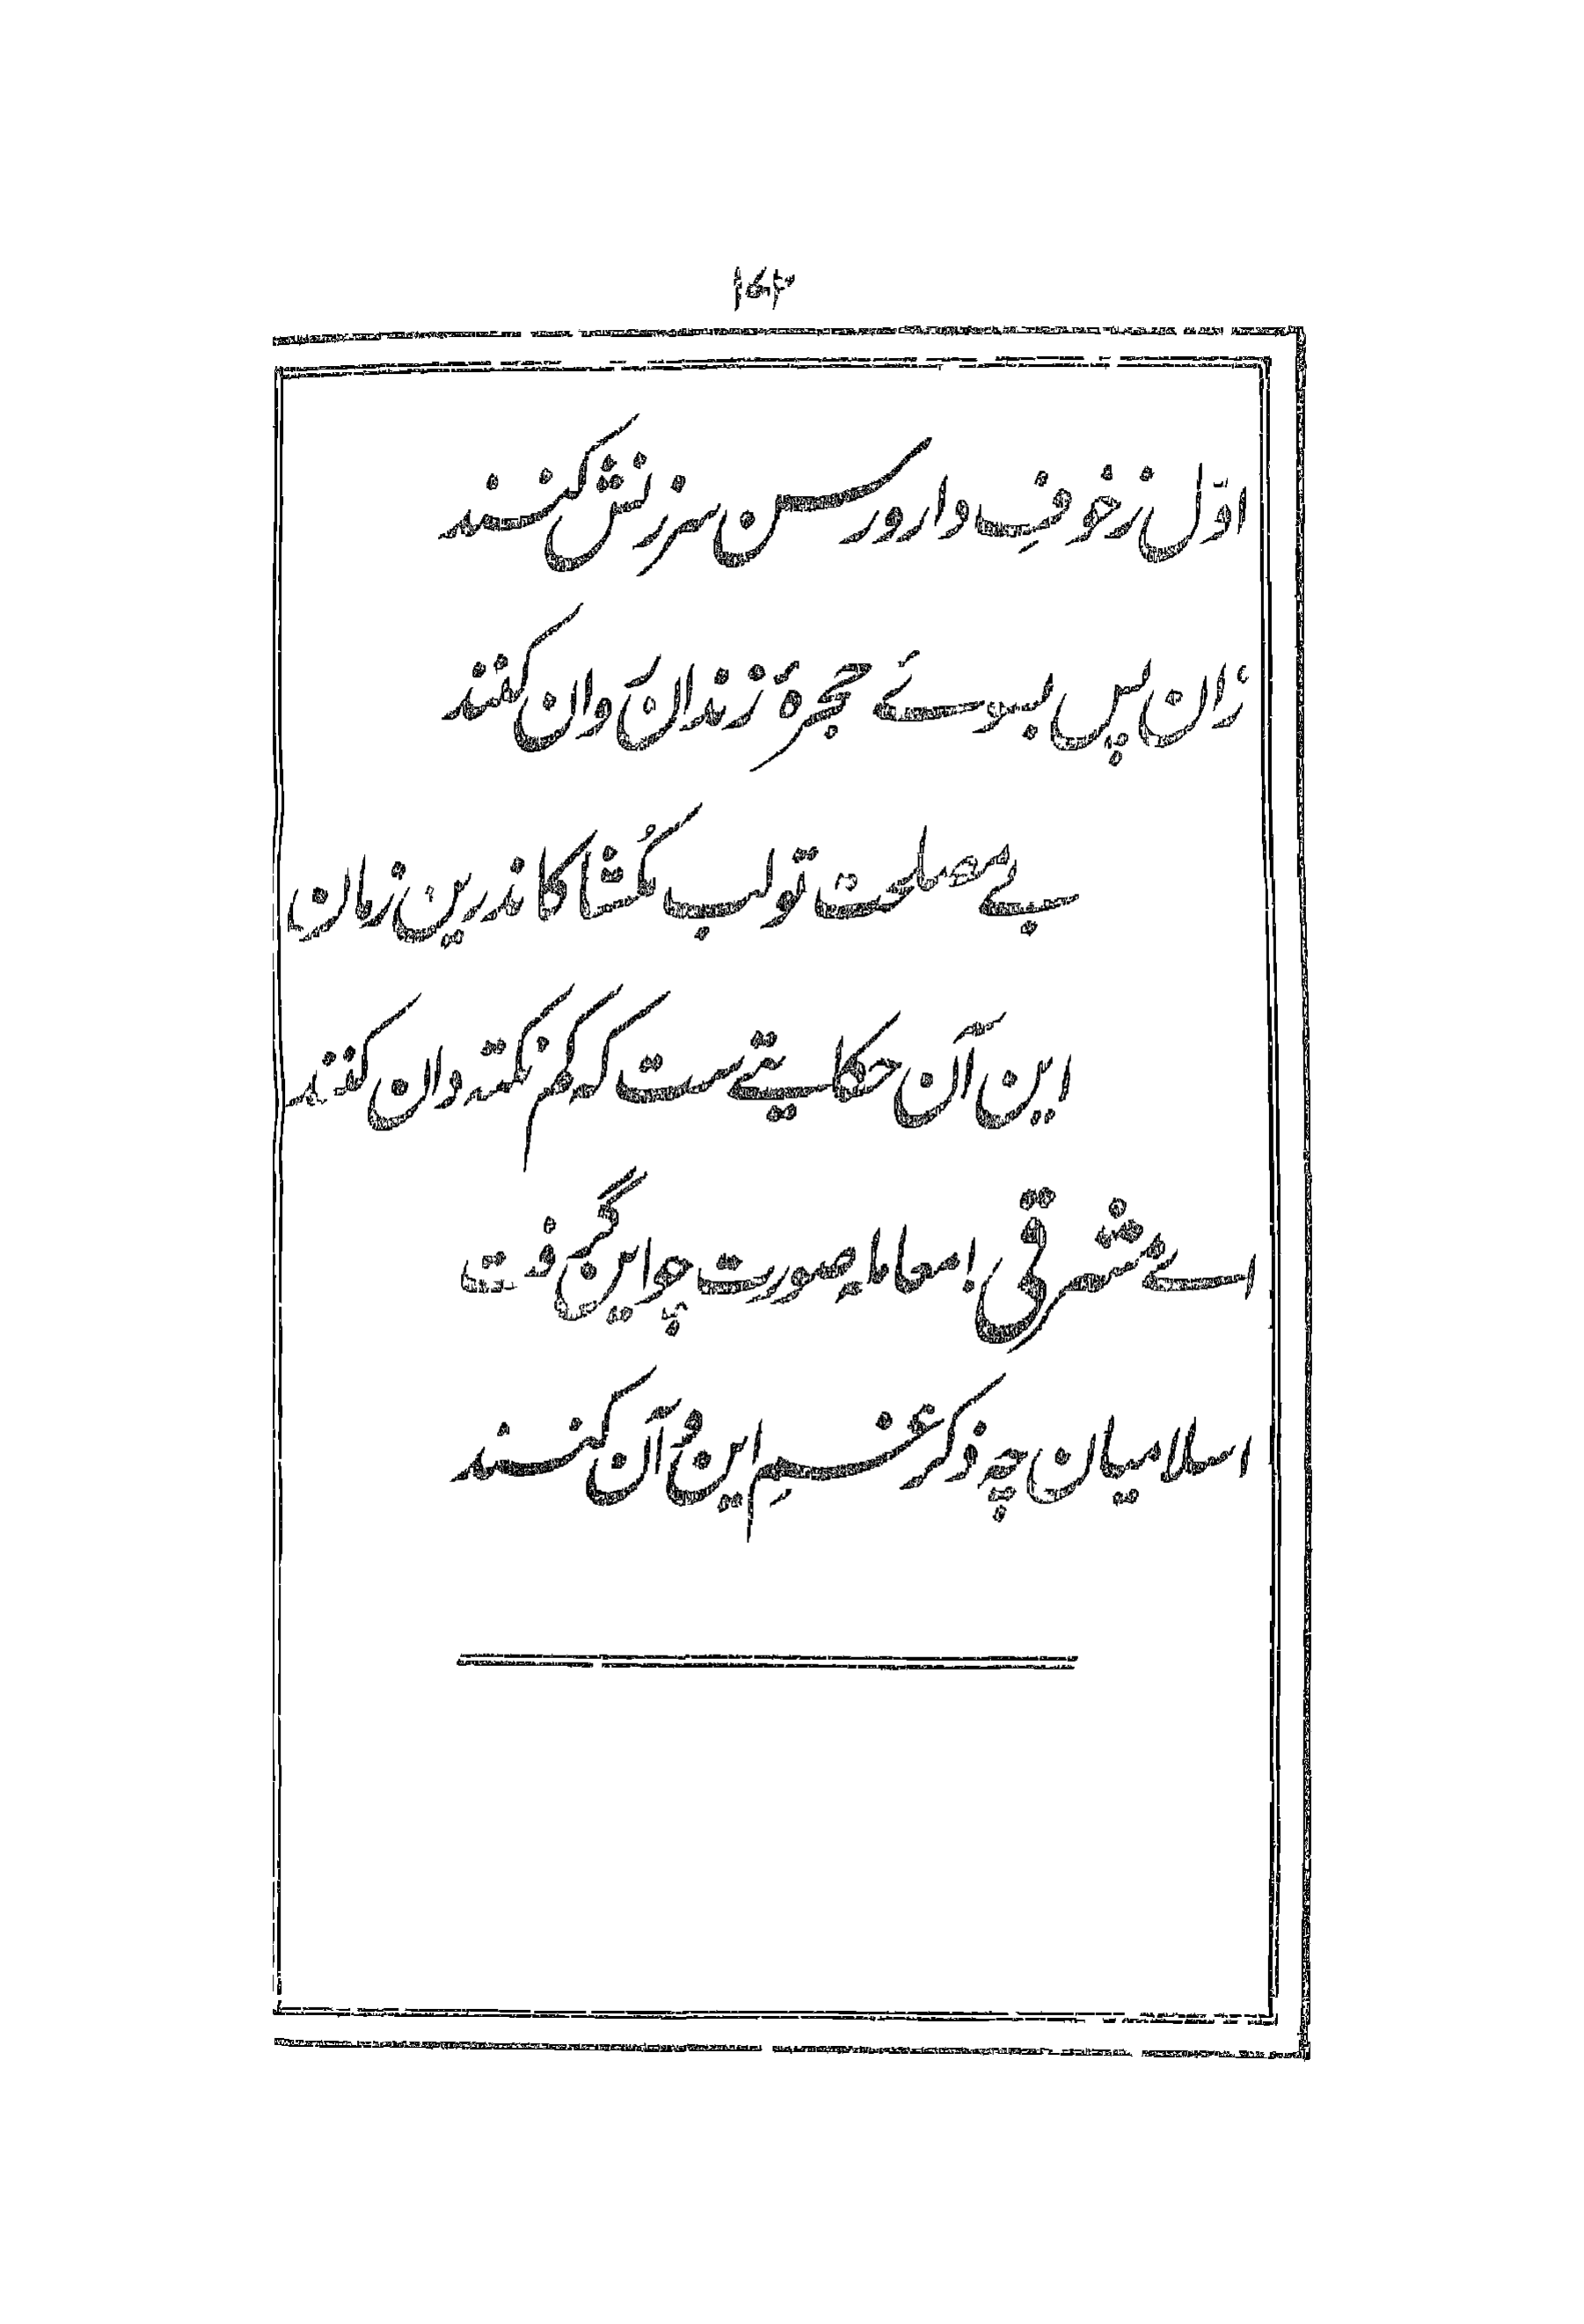 اوّل ز خوفِ دار و رسن سرزنش کنند
زان پس بسوئے حجرۂ زندان رَوان کنند
بے مصلحت تو لب مکُشا کاندرین زمان
این آن حکایتے ست که کم نکته دان کنند
اے مشرقی! معامله صورت چو این گرفت
اسلامیان چه ذکر غمِ این و آن کنند